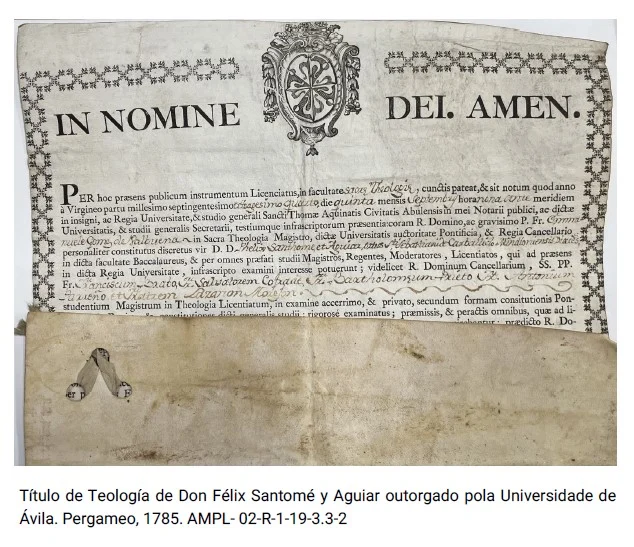 IN NOMINE DEI. AMEN.
PER hoc præsens publicum instrumentum Licenciatus, in facultate sacræ Theologiæ, cunctis pateat, & sit notum quod anno
à Virgineo partu millesimo septingentesimo octogesimo quinto, die quinta mensis Septembris hora nona ante meridiem
in insigni, ac Regia Universitate, & studio generali Sancti Thomæ Aquinatis Civitatis Abulensis in mei Notarii publici, ac dictæ
Universitatis, & studii generalis Secretarii, testiumque infrascriptorum præsentia: coram R. Domino, ac gravisimo P. Fr. Emma
nuele Gomez de Salbuena in Sacra Theologia Magistro, dictæ Universitatis auctoritate Pontificia, & Regia Cancellario
personaliter constitutus discretus vir D. D. Felix Santomé et Aguiar,
in dicta facultate Baccalaureus, & per omnes præfati studii Magistros, Regentes, Moderatores, Licentiatos, qui ad præsens
in dicta Regia Universitate, infrascripto examini interesse potuerunt; videlicet R. Dominum Cancellarium, SS. PP.
Fr. Franciscum Prato, Fr. Salvatorem Fr. Bartholomæum Prieto, Fr. Antonium
et Fratrem Lazarum
studentium Magistrum in Theologia Licentiatum, in examine acerrimo, & privato, secundum formam constitutionis Pon-
dicti generalis studii; rigorosé examinatus; præmissis, & peractis omnibus, quæ ad li-
prædicto R. Do-
er p F.
Título de Teología de Don Félix Santomé y Aguiar outorgado pola Universidade de
Ávila. Pergameo, 1785. AMPL- 02-R-1-19-3.3-2